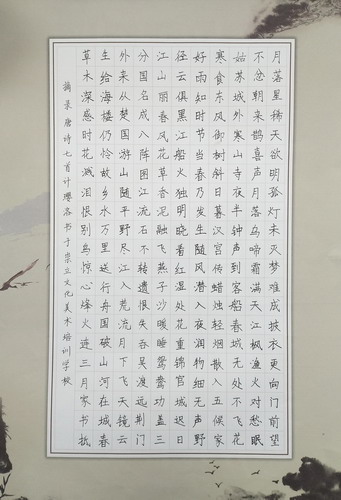 月落星稀天欲明孤灯未灭梦难成披衣更向门前望
不忿朝来鹊喜声月落乌啼霜满天江枫渔火对愁眠
姑苏城外寒山寺夜半钟声到客船春城无处不飞花
寒食东风御树斜日暮汉宫传蜡烛轻烟散入五侯家
好雨知时节当春乃发生随风潜入夜润物细无声野
径云俱黑江船火独明晓看红湿处花重锦官城迟日
江山丽春风花草香泥融飞燕子沙暖睡鸳鸯功盖三
分国名成入阵图江流石不转遗恨失吞吴渡远荆门
外来从楚国游山随平野尽江入荒流月下飞天镜云
生给海楼仍怜故乡水万里送行舟国破山河在城春
草木深感时花溅泪恨别鸟惊心烽火连三月家书抵
摘录唐诗七首计樱洛书于崇立文化美术培训学校